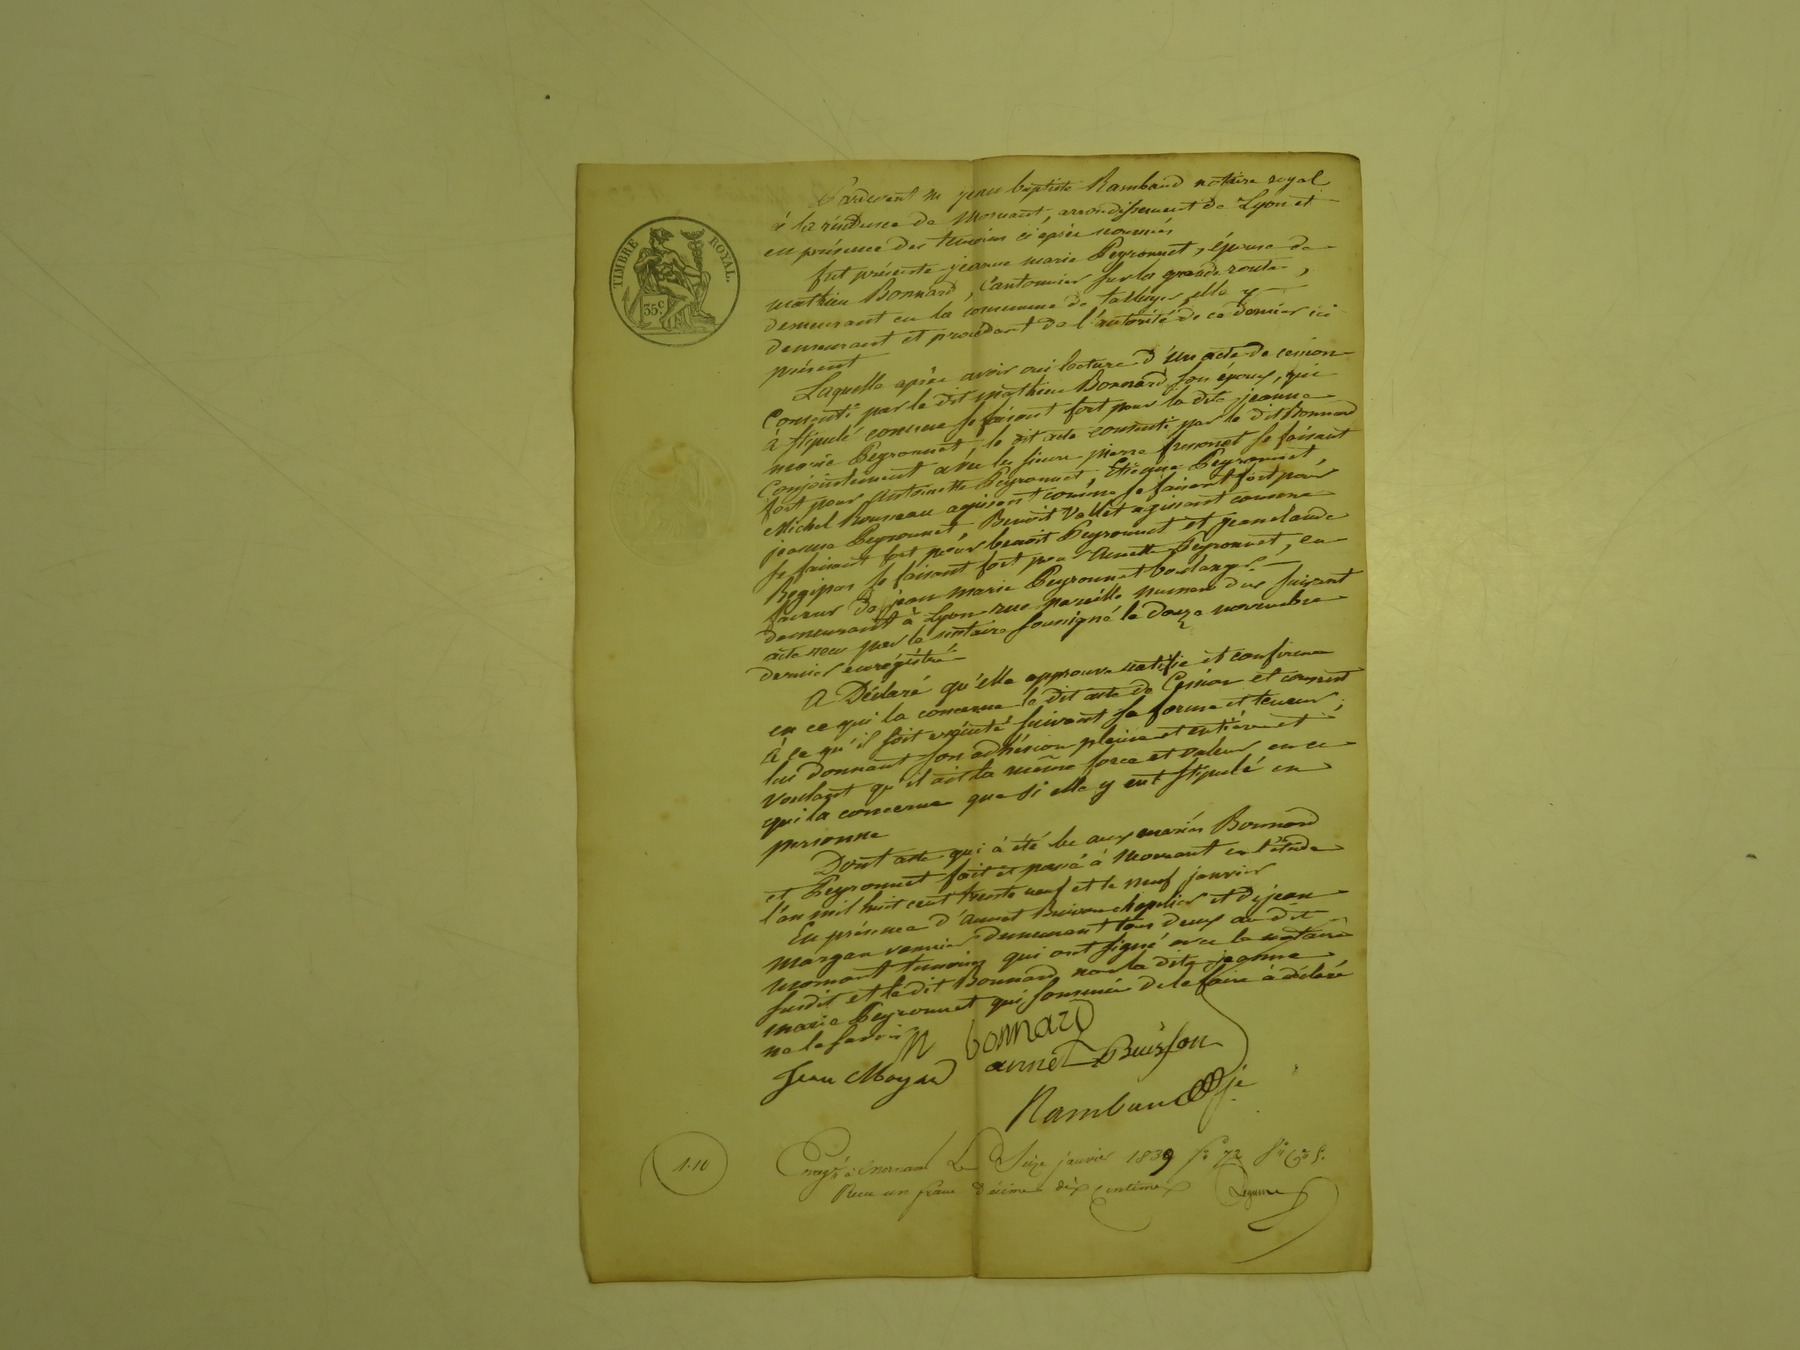 TIMBRE ROYAL.
35.c
Pardevant Me jean baptiste Rambaud notaire royal
à la résidence de Mornant, arrondissement de Lyon et
en présence des temoins ci après nommés
fut présente jeanne marie Peyronnet, épouse de
mathieu Bonnard, Cantonnier sur la grande route,
demeurant en la commune de taluyer, elle y
demeurant et procédant de l'autorité de ce dernier ici
présent
Laquelle après avoir oui lecture d'un acte de cession
consenti par le dit mathieu Bonnard son époux, qui
à stipulé comme se faisant fort pour la dite jeanne
marie Peyronnet, le dit acte consenti par le dit Bonnard
Conjointement avec les sieurs pierre se faisant
fort pour Antoinette Peyronnet, Etienne Peyronnet
Michel Rousseau agissant comme se faisant fort pour
jeanne Peyronnet, Benoit Vallet agissant comme
se faisant fort pour benoit Peyronnet et jean claude
se faisant fort pour Peyronnet, en
faveur de jean marie Peyronnet boulanger
demeurant à Lyon rue numero dux suivant
acte recu par le notaire soussigné le douze novembre
dernier enregistré
A Déclaré qu'elle approuve ratifie et confirme
en ce qui la concerne le dit acte de Cession et consent
à ce qu'il soit exécuté suivant sa forme et teneur;
lui donnant son adhésion pleine et entière et
voulant qu'il ait la même force et valeur en ce
qui la concerne que si elle y eut stipulé en
personne
Dont acte qui à été lu aux mariés Bonnard
et Peyronnet fait et passé à Mornant en l'étude
l'an mil huit cent trente neuf et le neuf janvier
En présence d'annet Buisson chapelier et de jean
vannier demeurant tous deux au dit
mornant temoins qui ont signé avec le notaire
susdit et le dit Bonnard non la dite jeanne
marie Peyronnet qui sommée de le faire à déclaré
ne le savoir
M bonnard
Jean annet Buisson
Rambaud
1.10
à Mornant Le Seize janvier 1839 fo 72
Recu un franc décime dix centimes